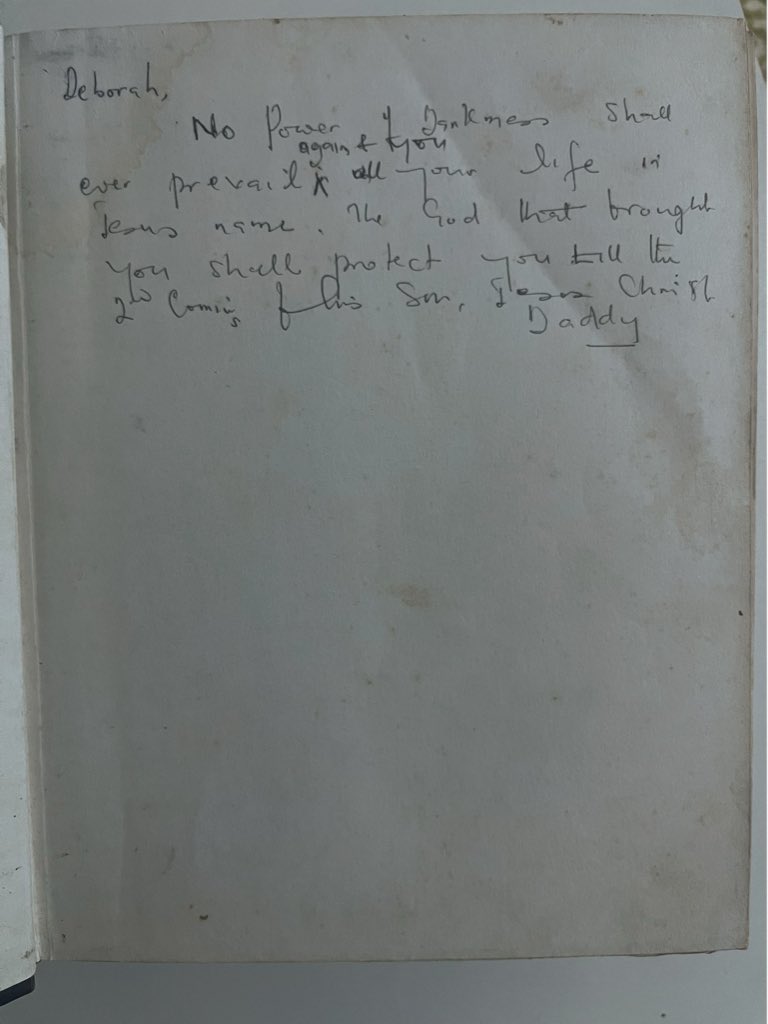 Deborah,
No Power of Darkness shall
against you
ever prevail all your life in
Jesus name. The God that brought
you shall protect you till the
2nd Coming of his Son, Jesus Christ
Daddy